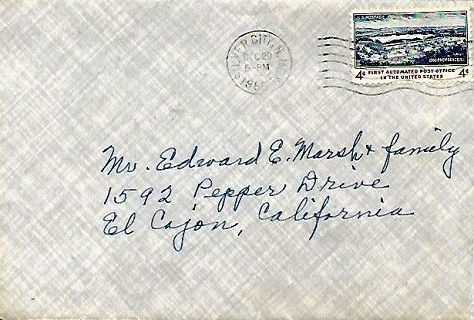 SILVER CITY, N.M.
DEC 20
6-PM
U.S. POSTAGE
4¢ FIRST AUTOMATED POST OFFICE 4¢
IN THE UNITED STATES
Mr. Edward E. Marsh & family
1592 Pepper Drive
El Cajon, California